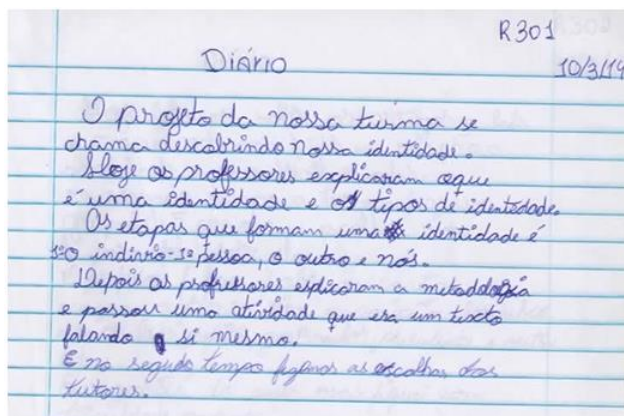 R301
Diário 10/3/19
O projeto da nossa turma se
chama descobrindo nossa identidade.
Hoje os professores explicaram oque
é uma identidade e os tipos de identidade.
Os etapas que formam uma identidade é
1º O indivírio-1ª pessoa, o outro e nós.
Depois os professores esplicaram a metodologia
e passou uma atividade que era um texto
falando si mesmo.
E no segudo tempo fizemos as escolhas dos
tutores.